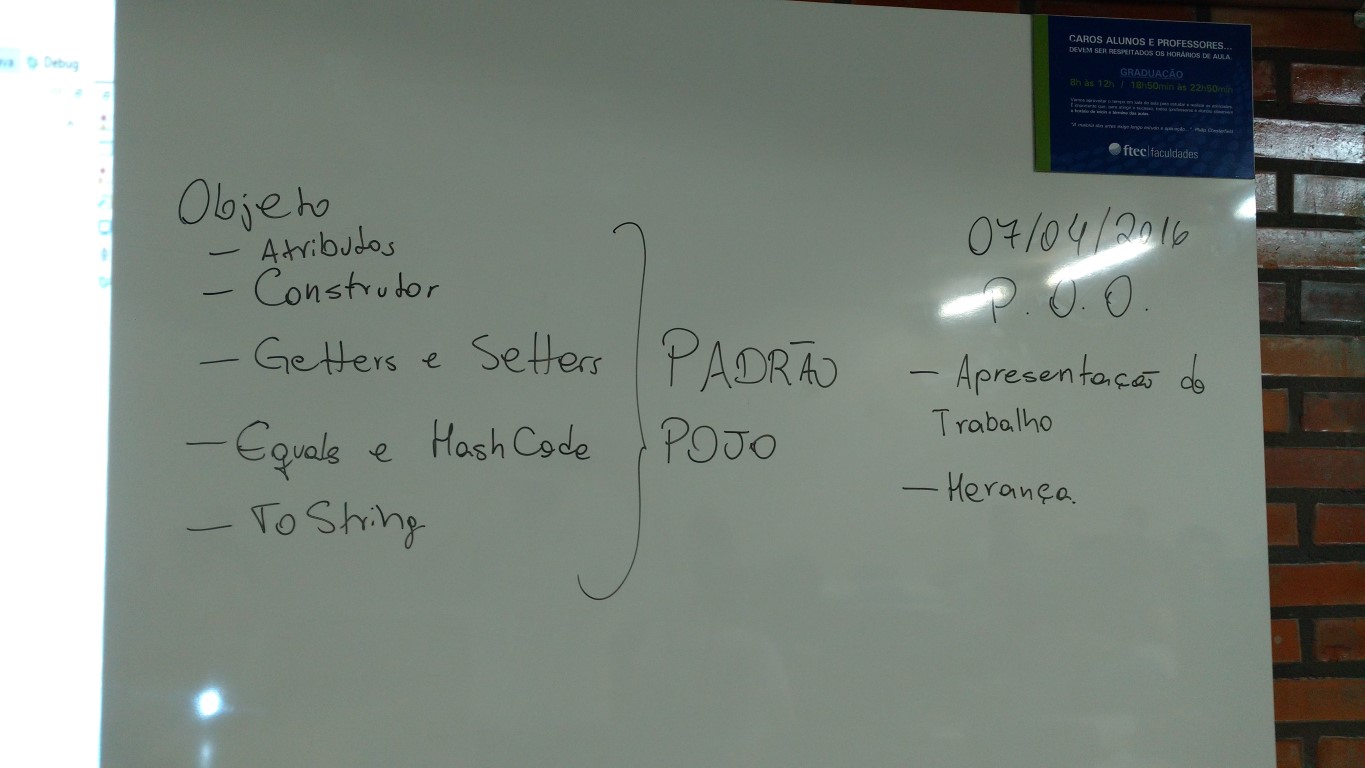 Debug
CAROS ALUNOS E PROFESSORES...
DEVEM SER RESPEITADOS OS HORÁRIOS DE AULA.
GRADUAÇÃO
8h às 12h / 18h50min às 22h50min
ftec|faculdades
Objeto
— Atributos
— Construtor
— Getters e Setters
— Equals e HashCode
— To String
PADRÃO
POJO
07/04/2016
P.O.O.
— Apresentação do
Trabalho
— Herança.